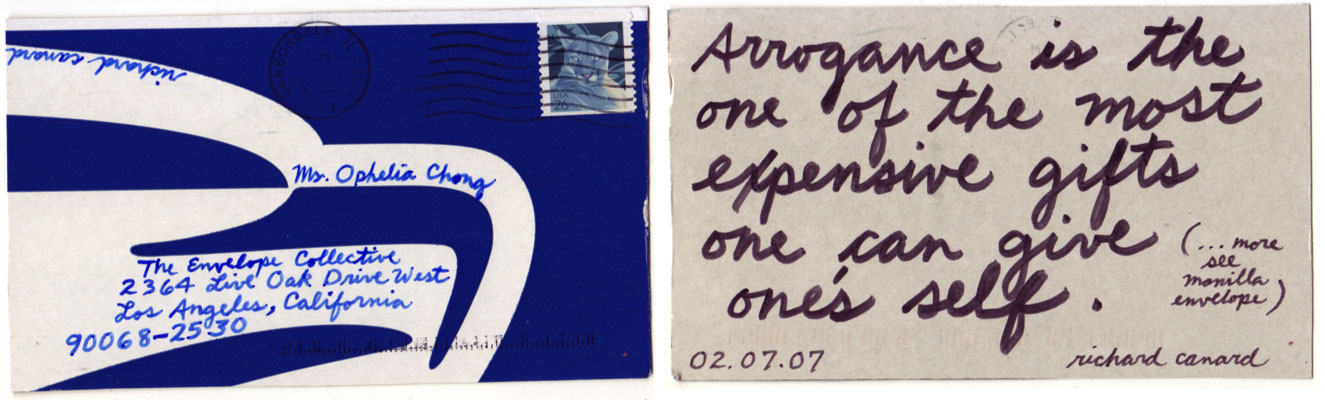 richard canard
CARBONDALE, IL
USA 26
Ms. Ophelia Chong
The Envelope Collective
2364 Live Oak Drive West
Los Angeles, California
90068-2530
Arrogance is the
one of the most
expensive gifts
one can give
one's self.
(... more
see
manilla
envelope)
02.07.07
richard canard